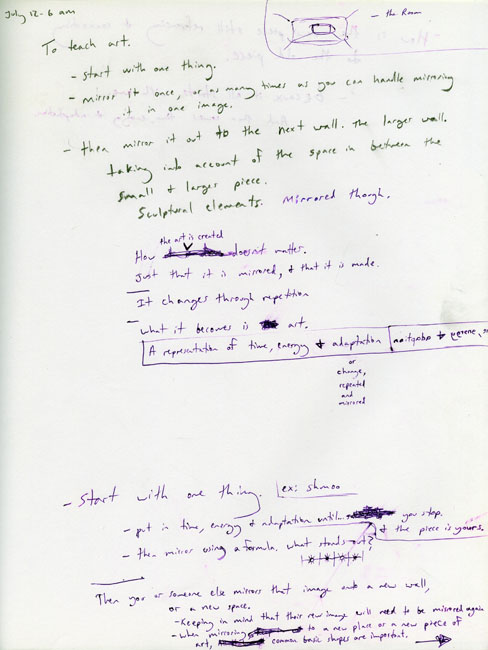 July 12 - 6 am
- the Room
To teach art.
- start with one thing.
- mirror it once, or as many times as you can handle mirroring
it in one image.
- then mirror it out to the next wall. The larger wall.
taking into account of the space in between the
small & larger piece.
Sculptural elements. Mirrored though.
the art is created
How doesn't matter.
Just that it is mirrored, & that it is made.
It changes through repetition
What it becomes is art.
A representation of time, energy & adaptation
or
change,
repeated
and
mirrored
- Start with one thing. ex: shmoo
- put in time, energy & adaptation until you stop.
& the piece is yours.
- then mirror using a formula. what stands out?
Then you or someone else mirrors that image onto a new wall,
or a new space.
- Keeping in mind that their new image will need to be mirrored again
- When mirroring to a new place or a new piece of
art, common basic shapes are important.